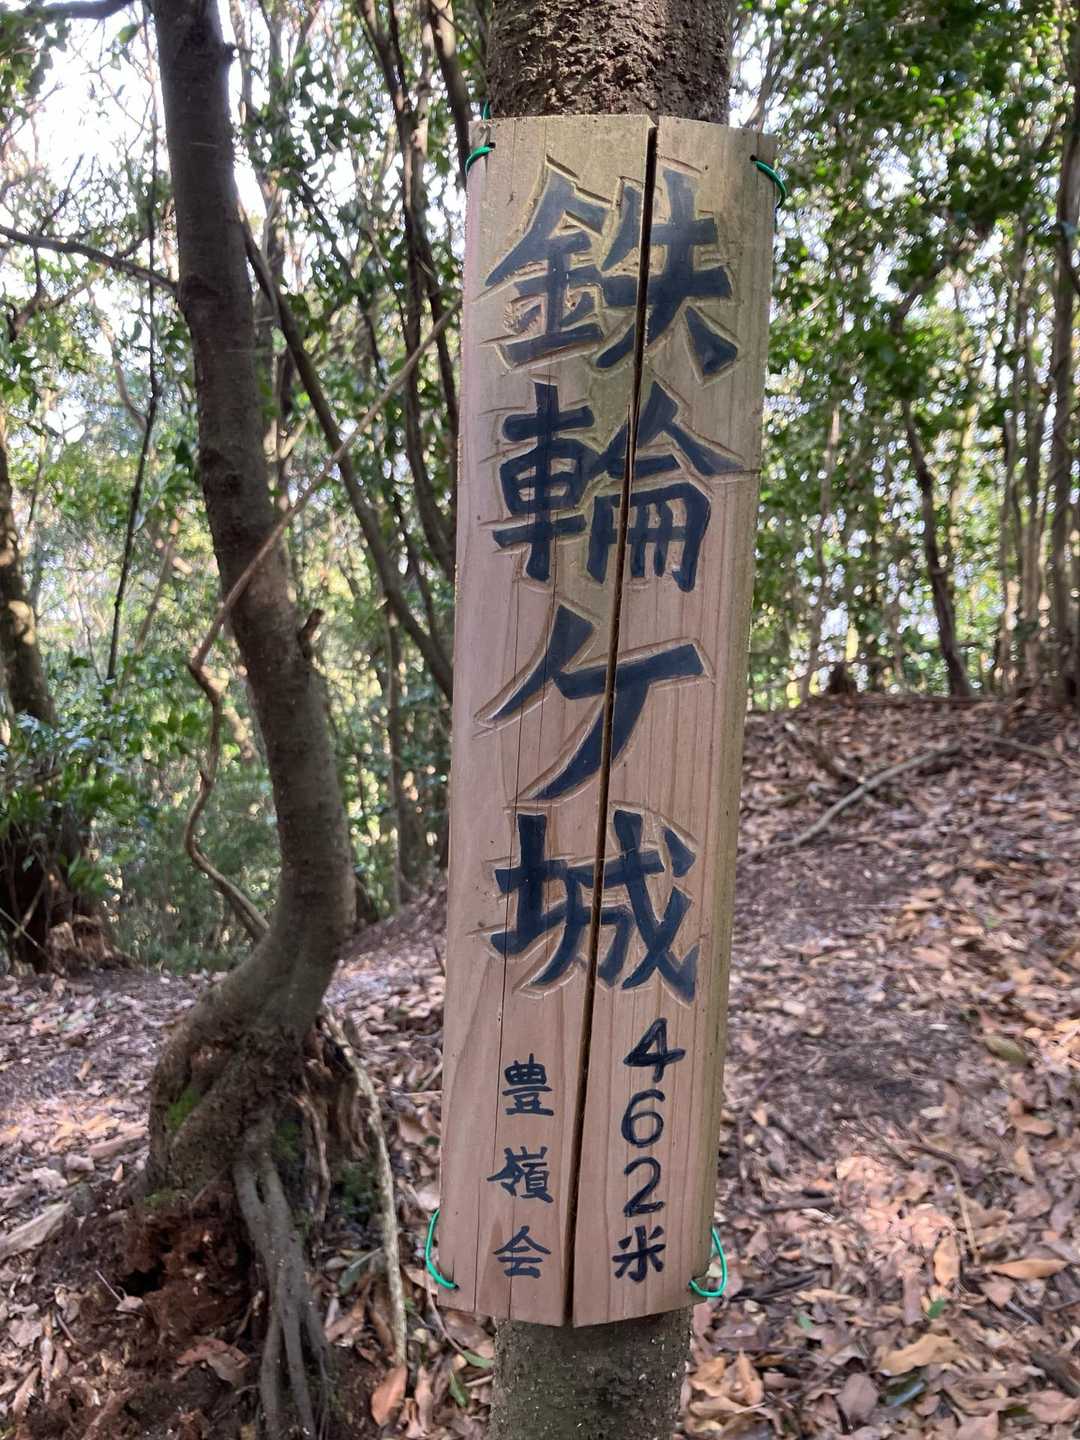 鉄輪ケ城
462米
豊嶺会